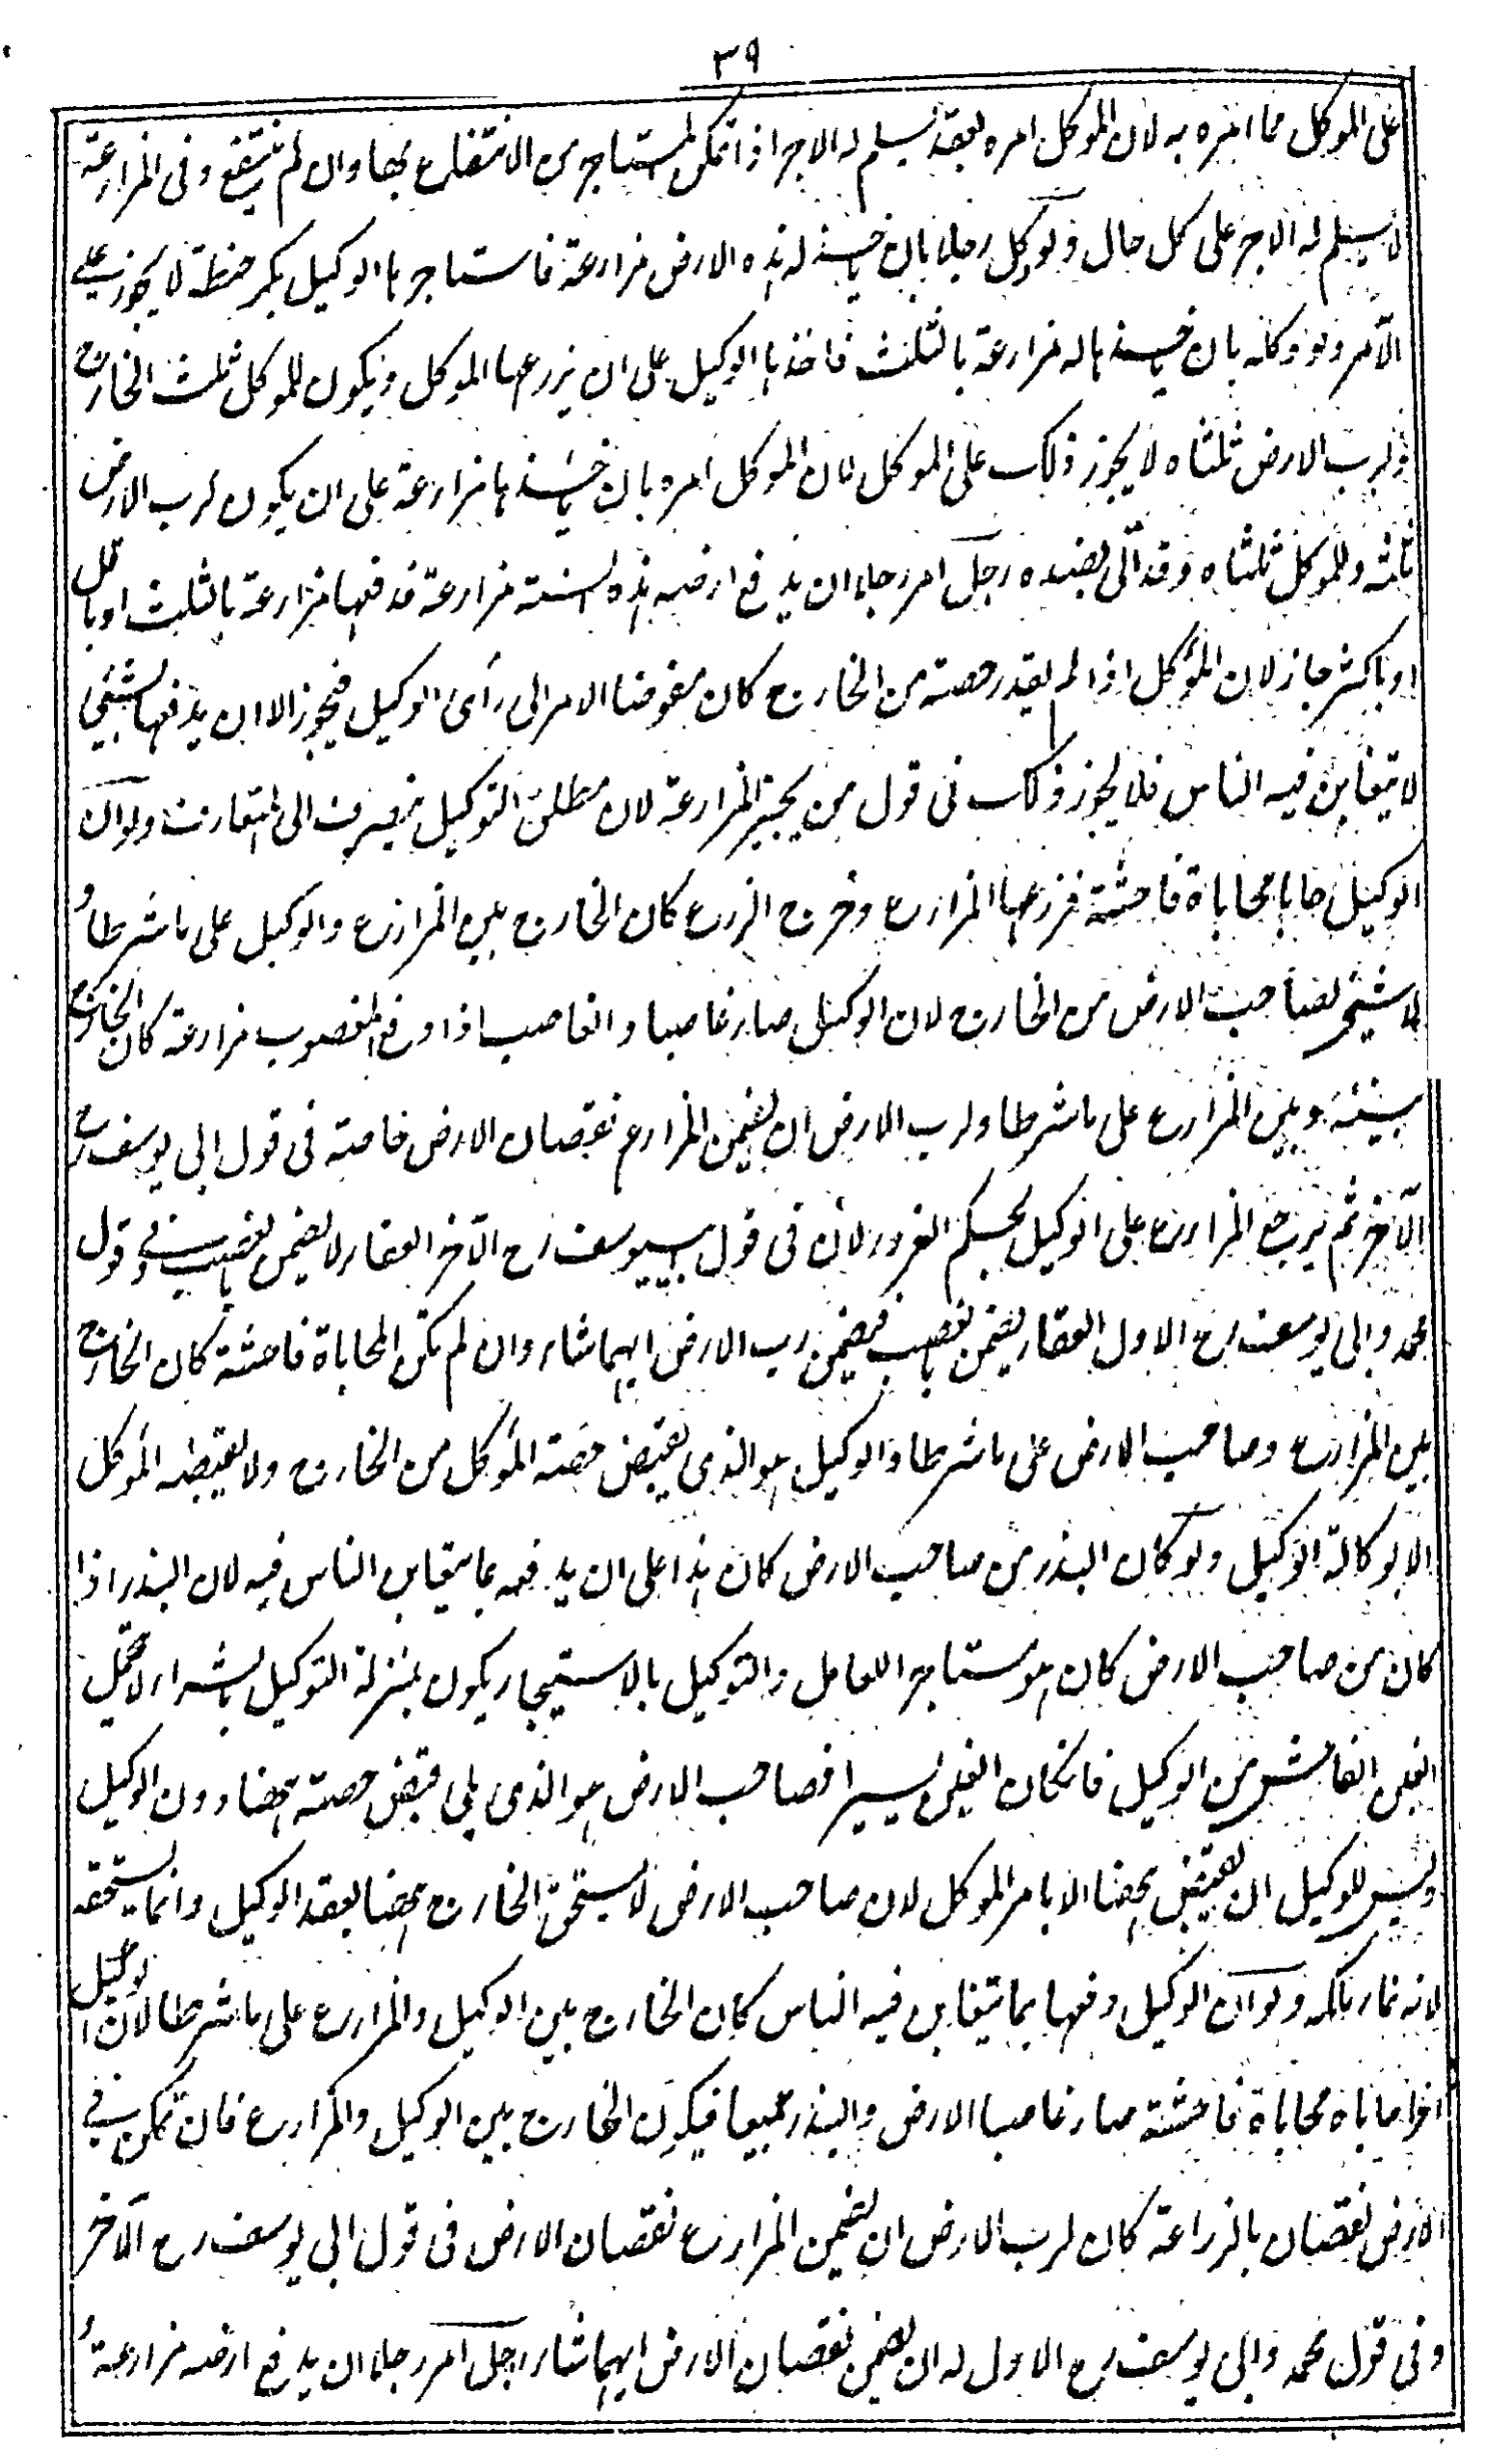 ٣٩
على الموكل مما امره به لان الموكل امره بعقد يسلم له الاجر اذا تمكن المستاجر من الانتفاع بها وان لم ينتفع وفى المزارعة
لا يسلم له الاجر على كل حال ولو وكل رجلا بان ياخذ له هذه الارض مزارعة فاستاجرها الوكيل بكر حنطة لا يجوز على
الآمر ولو وكله بان ياخذها له مزارعة بالثلث فاخذها الوكيل على ان يزرعها الموكل ويكون للموكل ثلث الخارج
ولرب الارض ثلثاه لا يجوز ذلك على الموكل لان الموكل امره بان ياخذها مزارعة على ان يكون لرب الارض
ثلثه وللموكل ثلثاه وقد اتى بضده رجل امر رجلا ان يدفع ارضه هذه السنة مزارعة فدفعها مزارعة بالثلث او باقل
او باكثر جاز لان الموكل اذا لم يقدر حصته من الخارج كان مفوضا الامر الى رأى الوكيل فيجوز الا ان يدفعها بشئ
لا يتغابن فيه الناس فلا يجوز ذلك فى قول من يجيز المزارعة لان مطلق التوكيل ينصرف الى المتعارف ولو ان
الوكيل حابا محاباة فاحشة فزرعها المزارع وخرج الزرع كان الخارج بين المزارع والوكيل على ما شرطا و
لا شئ لصاحب الارض من الخارج لان الوكيل صار غاصبا والغاصب اذا دفع المغصوب مزارعة كان الخارج
بينه وبين المزارع على ما شرطا ولرب الارض ان يضمن المزارع نقصان الارض خاصة فى قول ابى يوسف رح
الآخر ثم يرجع المزارع على الوكيل بحكم الغرور لان فى قول ابييوسف رح الآخر العقار لا يضمن بالغصب وفى قول
محمد وابى يوسف رح الاول العقار يضمن بالغصب فيضمن رب الارض ايهما شاء وان لم تكن المحاباة فاحشة كان الخارج
بين المزارع وصاحب الارض على ما شرطا والوكيل هو الذى يقبض حصة الموكل من الخارج ولا يقبضه الموكل
الا بوكالة الوكيل ولو كان البذر من صاحب الارض كان هذا على ان يدفعه بما يتغابن الناس فيه لان البذر اذا
كان من صاحب الارض كان هو مستاجرا للعامل والتوكيل بالاستيجار يكون بمنزلة التوكيل بالشراء لا يتحمل
الغبن الفاحش من الوكيل فانكان الغبن يسيرا فصاحب الارض هو الذى يلى قبض حصته ههنا دون الوكيل
وليس للوكيل ان يقبض ههنا الا بامر الموكل لان صاحب الارض لا يستحق الخارج ههنا بعقد الوكيل وانما يستحقه
لانه نماء ملكه ولو ان الوكيل دفعها بما يتغابن فيه الناس كان الخارج بين الوكيل والمزارع على ما شرطا لان الوكيل
اذا حاباه محاباة فاحشة صار غاصبا الارض والبذر جميعا فيكون الخارج بين الوكيل والمزارع فان تمكن فى
الارض نقصان بالزراعة كان لرب الارض ان يضمن المزارع نقصان الارض فى قول ابى يوسف رح الآخر
وفى قول محمد وابى يوسف رح الاول له ان يضمن نقصان الارض ايهما شاء رجل امر رجلا ان يدفع ارضه مزارعة و